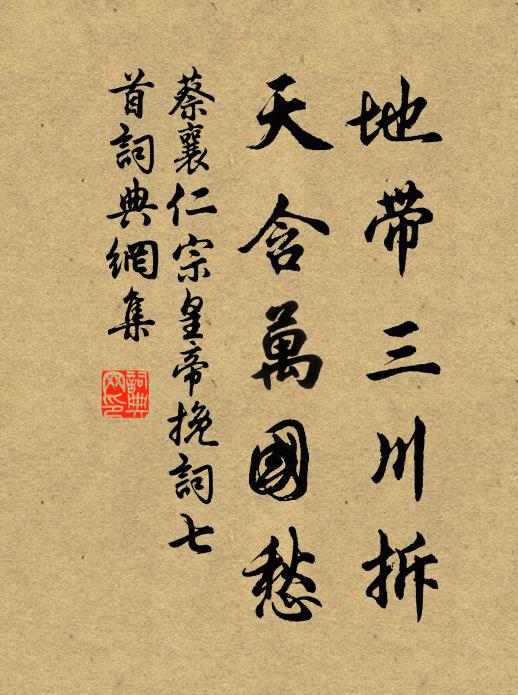 地带三川拆
天含萬國愁
蔡襄仁宗皇帝挽詞七
首詞典網集
詞典
网印